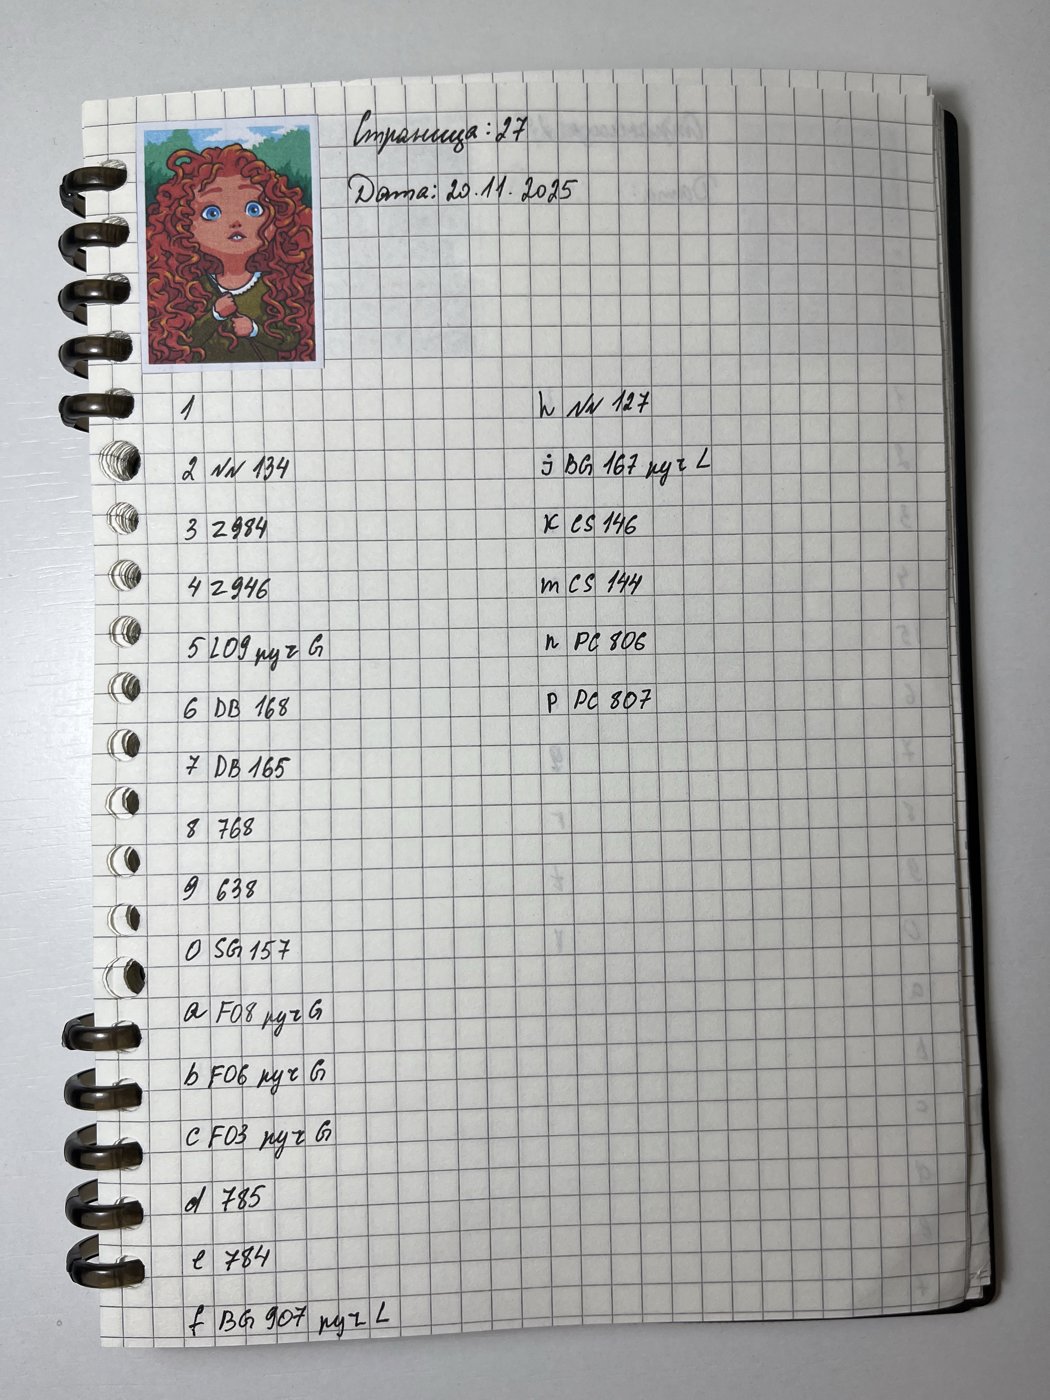 Страница: 27
Дата: 20.11.2025
1
2 NN 134
3 Z984
4 Z946
5 L09 руч G
6 DB 168
7 DB 165
8 768
9 638
0 SG 157
a F08 руч G
b F06 руч G
c F03 руч G
d 785
e 784
f BG 907 руч L
h NN 127
j BG 167 руч L
k CS 146
m CS 144
n PC 806
p PC 807